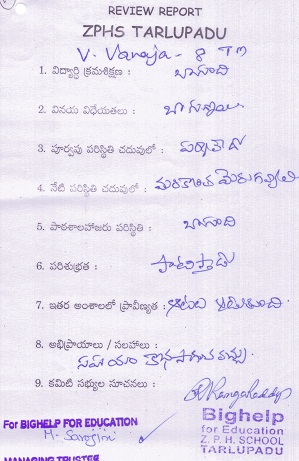 REVIEW REPORT
ZPHS TARLUPADU
V. Vanaja - 8 TH
1. విద్యార్ధి క్రమశిక్షణ : బాగుంది
2. వినయ విధేయతలు : బాగున్నాయి
3. పూర్వపు పరిస్థితి చదువులో : పర్వాలేదు
4. నేటి పరిస్థితి చదువులో : మరికొంత మెరుగవ్వాలి
5. పాఠశాలహాజరు పరిస్థితి : బాగుంది
6. పరిశుభ్రత : పాటిస్తాడు
7. ఇతర అంశాలలో ప్రావీణ్యత : ఆటలు ఆడుతుంది
8. అభిప్రాయాలు / సలహాలు :
సహాయం కొనసాగించవచ్చు.
9. కమిటి సభ్యుల సూచనలు :
For BIGHELP FOR EDUCATION
M. Sarojini
MANAGING TRUSTEE
Bighelp
for Education
Z. P. H. SCHOOL
TARLUPADU